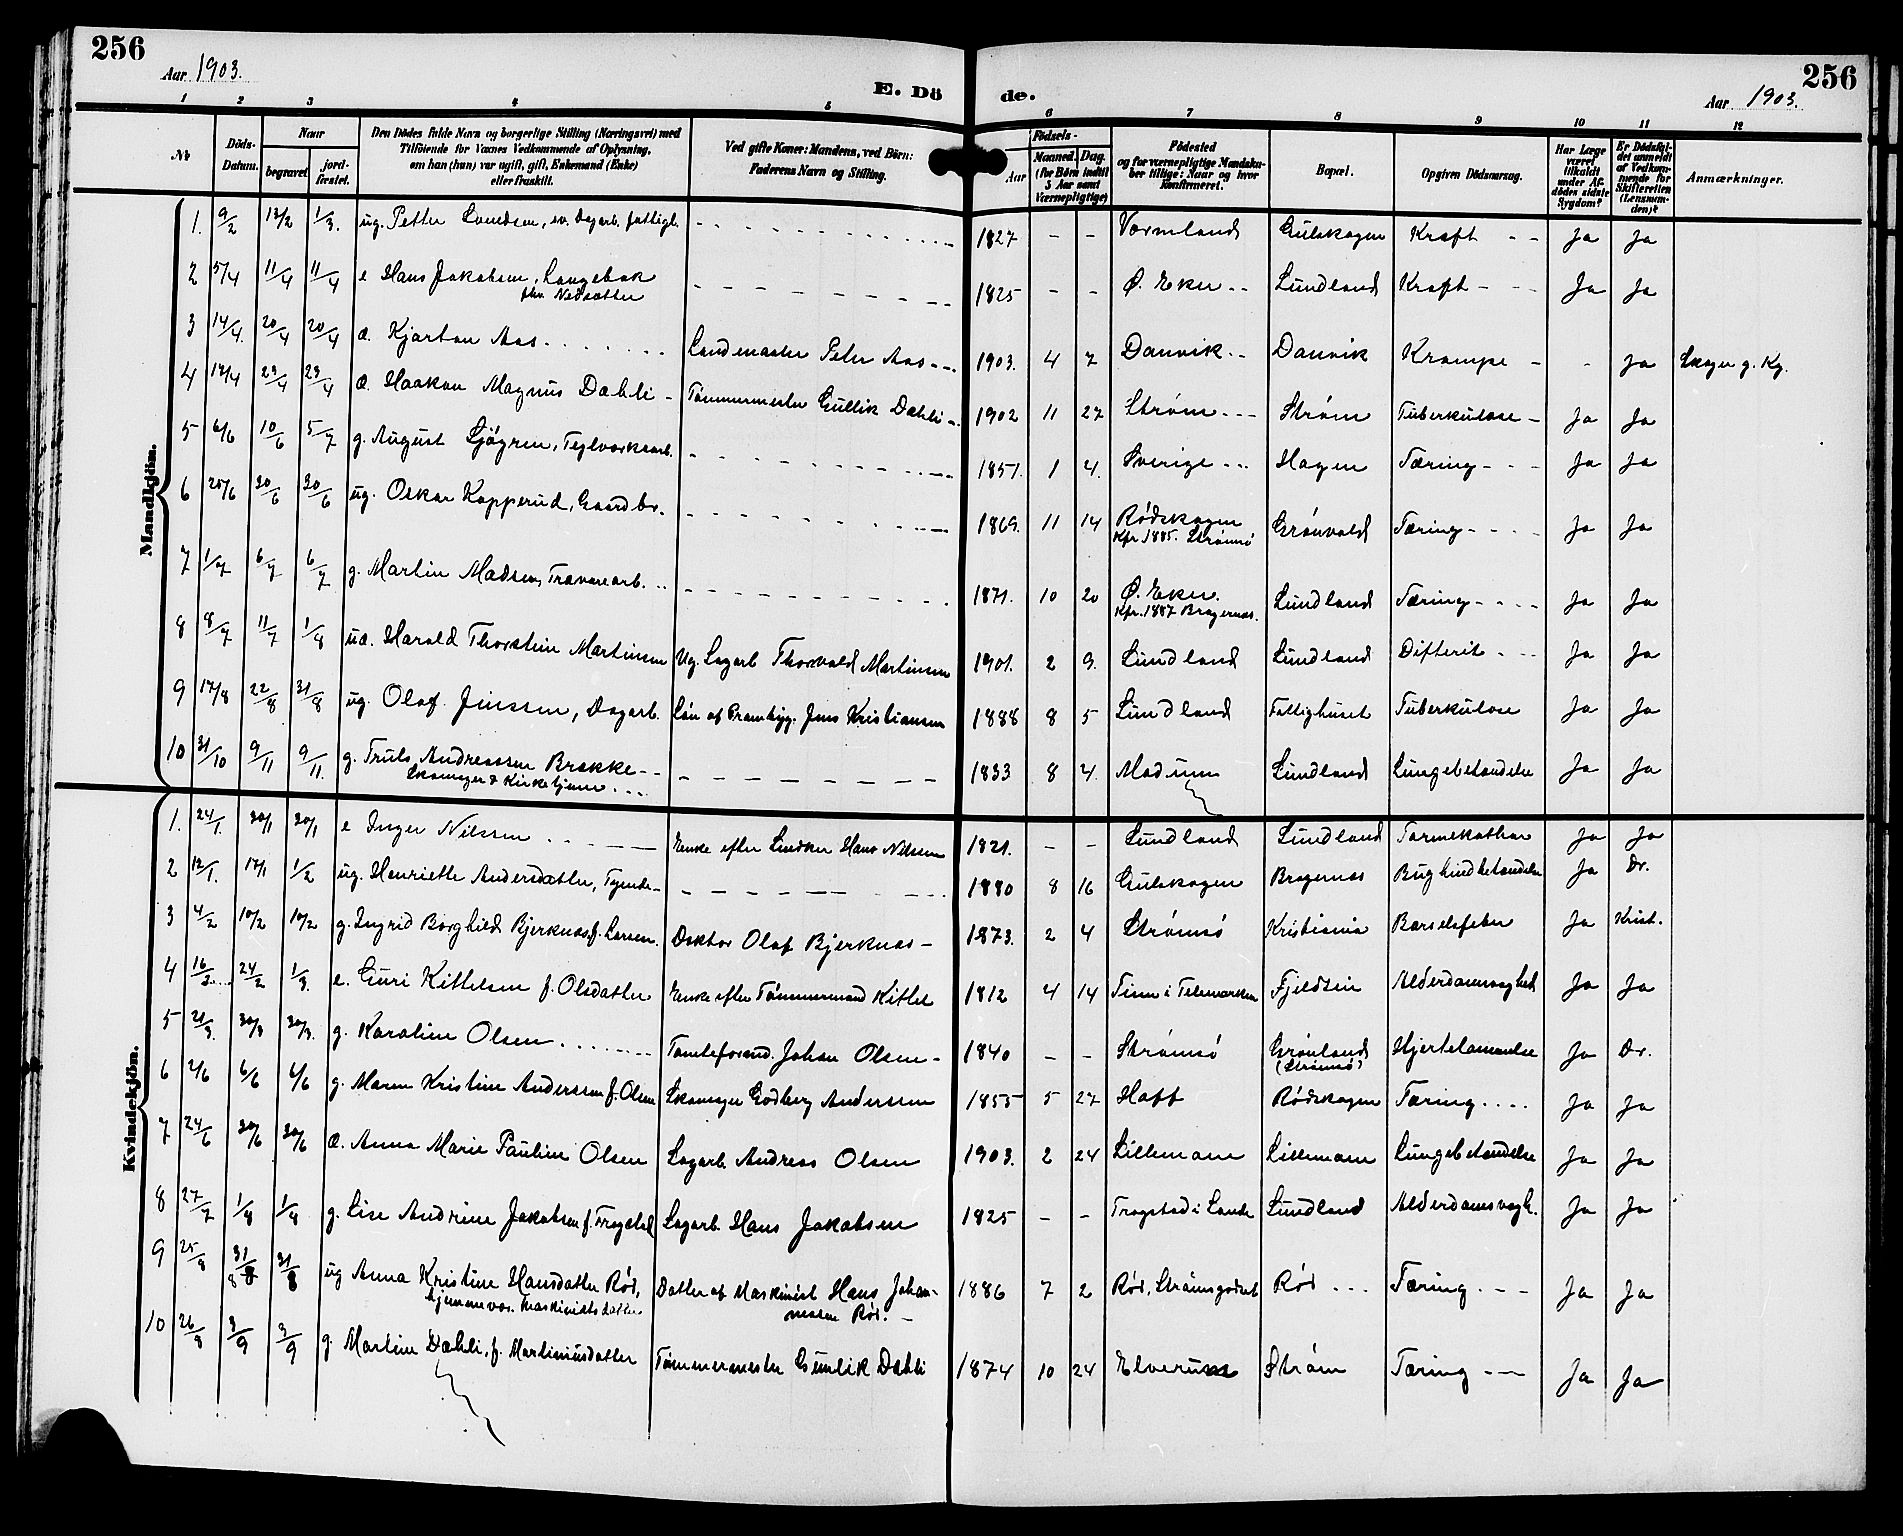 256
256
Aar 1903.
Aar 1903.
E. Dö de.
1 2 3 4 5 6 7 8 9 10 11 12
No
Döds-Datum.
Naar
begravet
jord-fæstet.
Den Dödes fulde Navn og borgerlige Stilling (Næringsvei) med
Tilföiende for Voxnes Vedkommende af Oplysning,
om han (hun) var ugift, gift, Enkemand (Enke)
eller fraskilt.
Ved gifte Koner: Mandens, ved Börn:
Faderens Navn og Stilling.
Födsels-
Aar
Maaned. Dag.
(for Börn indtil
5 Aar samt
Værnepligtige)
Födested
og for værnepligtige Mandska-
ber tillige: Naar og hvor
konfirmeret.
Bopæl.
Opgiven Dödsaarsag.
Har Læge
været
tilkaldt
under Af-
dödes sidste
Sygdom?
Er Dödsfal-
det anmeldt
af Vedkom-
mende for
Skifteretten
(Lensman-
den)?
Anmærkninger.
Mandkjön.
1. 9/2 13/2 1/3. ug. Petter Svendsen, ev. Dagarb. fattigl. 1827 - - Vermland Gulskogen Kræft Ja Ja
2 5/4 11/4 11/4 e Hans Jakobsen, Langebak 1825 - - Ø. Eker Lundland Kræft Ja Ja
3 14/4. 20/4 20/4 æ. Kjartan Aas Peter Aas 1903. 4 7 Danvik Danvik Krampe - Ja
4 17/4 23/4 23/4 æ. Haakon Magnus Dæhli Tømmermester Gullik Dæhli 1902 11 27 Strøm Strøm Tuberkulose Ja Ja
5 6/6 10/6 5/7 g. August Sjögren, Teglverksarb. 1851. 1 4. Sverige Hagen Tæring Ja Ja
6 25/6 30/6 30/6 ug. Oskar Kopperud, Gaardbr. 1869. 11 14 Rødskogen Grønvold Tæring Ja Ja
Kfr. 1885. Strømsø
7 1/7 6/7 6/7 g. Martin Madsen, Travarearb. 1871. 10 20 Ø. Eker. Lundland Tæring Ja Ja
Kfr. 1887 Bragernæs.
8 8/7 11/7 1/8 uæ. Harald Thorstein Martinsen Ug. Sagarb Thorvald Martinsen 1901. 2 9. Lundland Lundland Difterit Ja Ja
9 17/8 22/8 31/8 ug. Olaf Jenssen, Dagarb. Søn af Prambyg. Jens Kristiansen 1888 8 5 Lundland Fattighuset Tuberkulose Ja Ja
10 31/10 9/11 9/11. g. Truls Andreassen Brekke 1833 8 4. Modum Lundland Lungebetændelse Ja Ja
Skomager & Kirketjener
Kvindekjön.
1. 24/1. 30/1 30/1 e Inger Nilssen Enke efter Hans Nilssen 1821. - - Lundland Lundland Tarmekathar Ja Ja
2 12/1. 17/1 1/2 ug. Henriette Andersdatter, Tjende 1880 8 16 Gulskogen Bragernæs Bughindbetændelse Ja Dr.
3 4/2 10/2 10/2 g. Ingrid Borghild Bjerknæs f. Larsen. Doktor Olaf Bjerknæs 1873. 2 4 Strømsø Kristiania Barselfeber Ja Krist.
4 16/2 24/2 1/3. e. Guri Kittelsen f. Olsdatter Enke efter Tømmermand Kittel 1812 4 14 Tinn i Telemarken Alderdomssvaghed Ja Ja
5 21/3. 30/3 30/3. g. Karoline Olsen Tomteformd. Johan Olsen 1840 - - Strømsø Grønland Hjertelammelse Ja Dr.
(Strømsø)
6 2/6 6/6 6/6 g. Maren Kristine Anderssen f. Olsen Skomager Godberg Anderssen 1855 5 27 Hoff Rødskogen Tæring Ja Ja
7 24/6 30/6 30/6 æ. Anna Marie Pauline Olsen Sagarb. Andreas Olsen 1903. 2 24 Lillemoen Lillemoen Lungebetændelse Ja Ja
8 27/7 1/8 1/8 g. Lise Andrine Jakobsen f. Trogstad Sagarb. Hans Jakobsen 1825 - - Trogstad i Sande Lundland Alderdomssvagh. Ja Ja
9 25/8 31/8 31/8 ug Anna Kristine Hansdatter Rød, Datter af Maskinist Hans Johan- 1886 7 2 Rød, Strømsgodset Rød Tæring Ja Ja
hjemmevær. Maskinistsdatter nessen Rød.
10 26/8 3/9 3/9 g. Martine Dæhli, f. Martiniusdatter Tømmermester Gunlik Dæhli 1874 10 24 Elverum Strøm Tæring Ja Ja